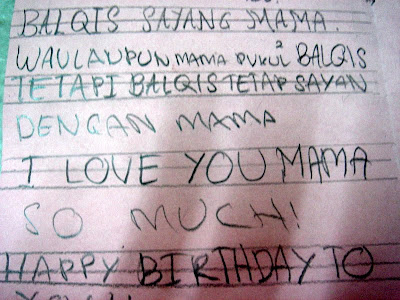 BALQIS SAYANG MAMA.
WAULAUPUN MAMA PUKUL2 BALQIS
TETAPI BALQIS TETAP SAYAN
DENGAN MAMA
I LOVE YOU MAMA
SO MUCH!
HAPPY BIRTHDAY TO